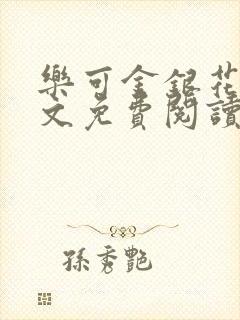 樂可金銀花
文免費閱讀
孫秀艷